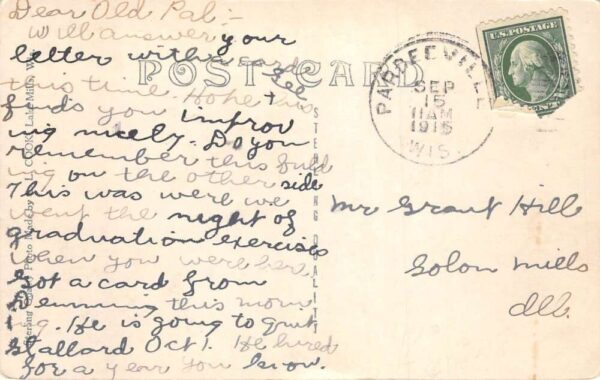 Dear Old Pal :-
Will answer your
letter with a card
this time Hope this
finds you improv
ing nicely. Do you
remember this build
ing on the other side
This was were we
went the night of
graduation exercises
when you were here
Got a card from
Demming this morn
ing. He is going to quit
Stallard Oct 1. He hired
for a year you know.
POST CARD
STERLING QUALITY
Sterling Photo Made by COOK, Lake Mills, Wis.
U.S. POSTAGE
PARDEEVILLE
SEP
15
11AM
1915
WIS.
Mr Grant Hill
Solon Mills
Ill.